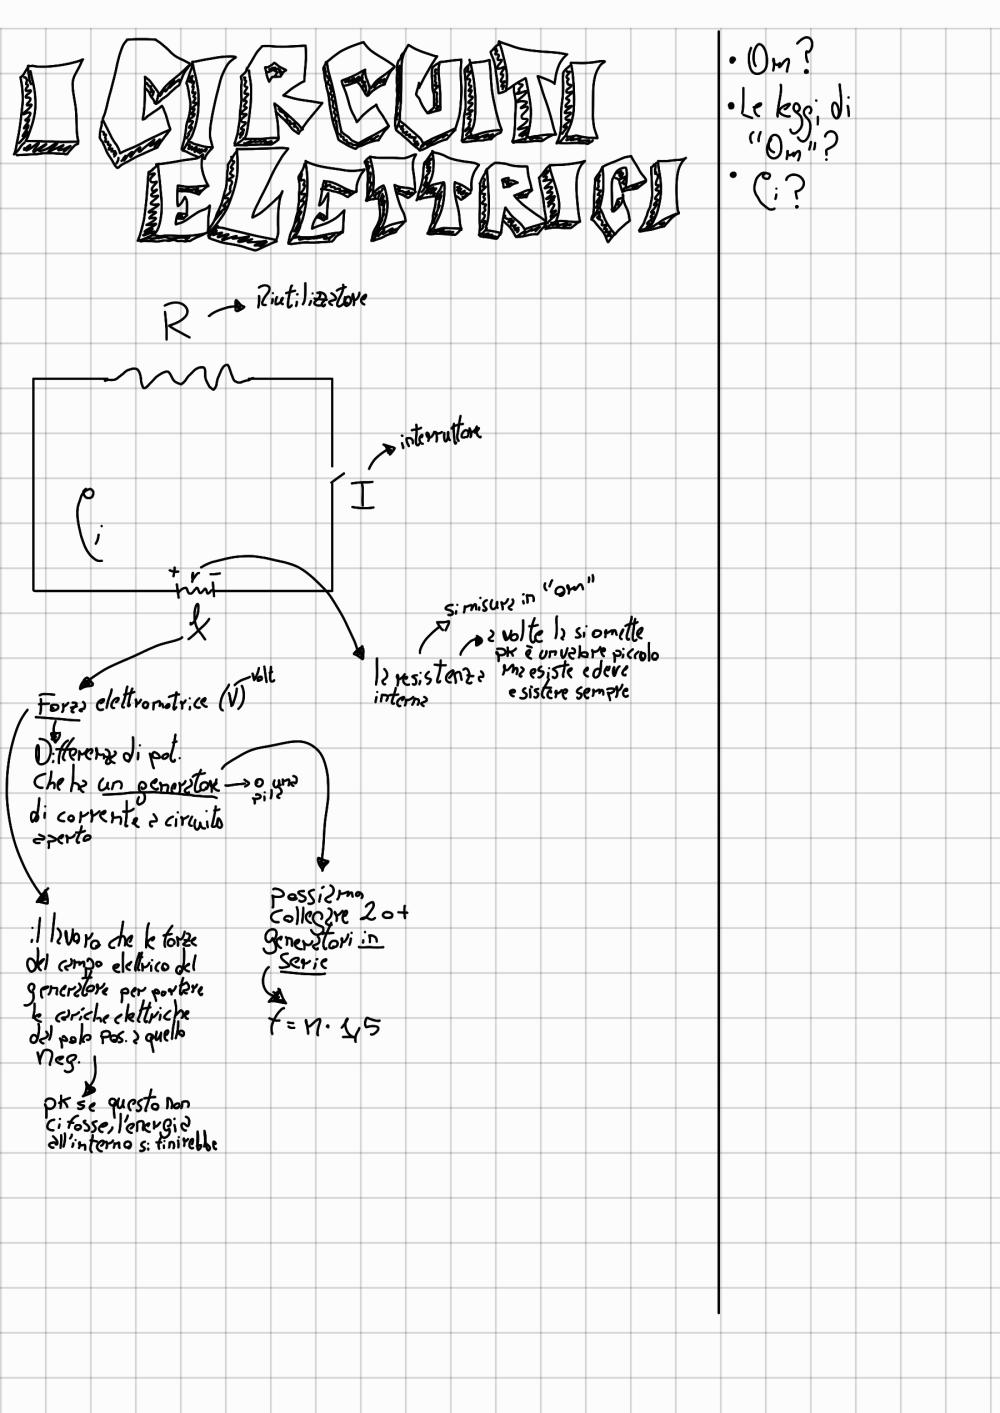 I CIRCUITI
ELETTRICI
R
Riutilizzatore
interruttore
I
i
+ r -
f
la resistenza
interna
si misura in "om"
a volte la si omette
pk è un valore piccolo
ma esiste e deve
esistere sempre
Forza elettromotrice (V)
volt
Differenza di pot.
che ha un generatore
o una
pila
di corrente a circuito
aperto
il lavoro che le forze
del campo elettrico del
generatore per portare
le cariche elettriche
dal polo pos. a quello
neg.
pk se questo non
ci fosse, l'energia
all'interno si finirebbe
possiamo
collegare 2 o +
generatori in
serie
f = n · 1,5
• Om?
• Le leggi di
"Om"?
• i?